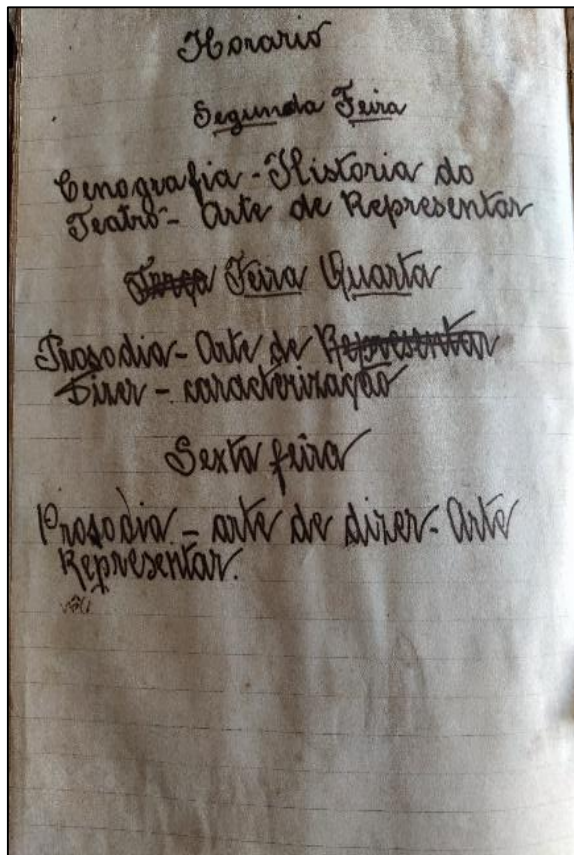 Horario
Segunda Feira
Cenografia - Historia do
Teatro - Arte de Representar
Terça Feira Quarta
Prosodia - Arte de Representar
Dizer - caracterização
Sexta feira
Prosodia - arte de dizer - Arte
Representar.